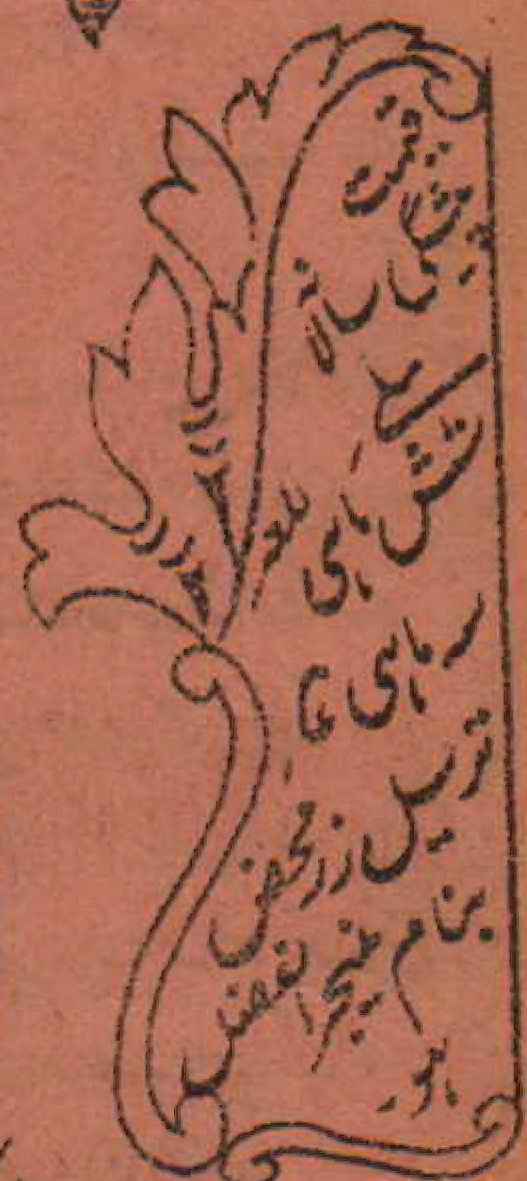 قیمت
پیشگی سالانہ
شش ماہی
سہ ماہی
ترسیل زر محض
بنام منیجر الفضل
ہو